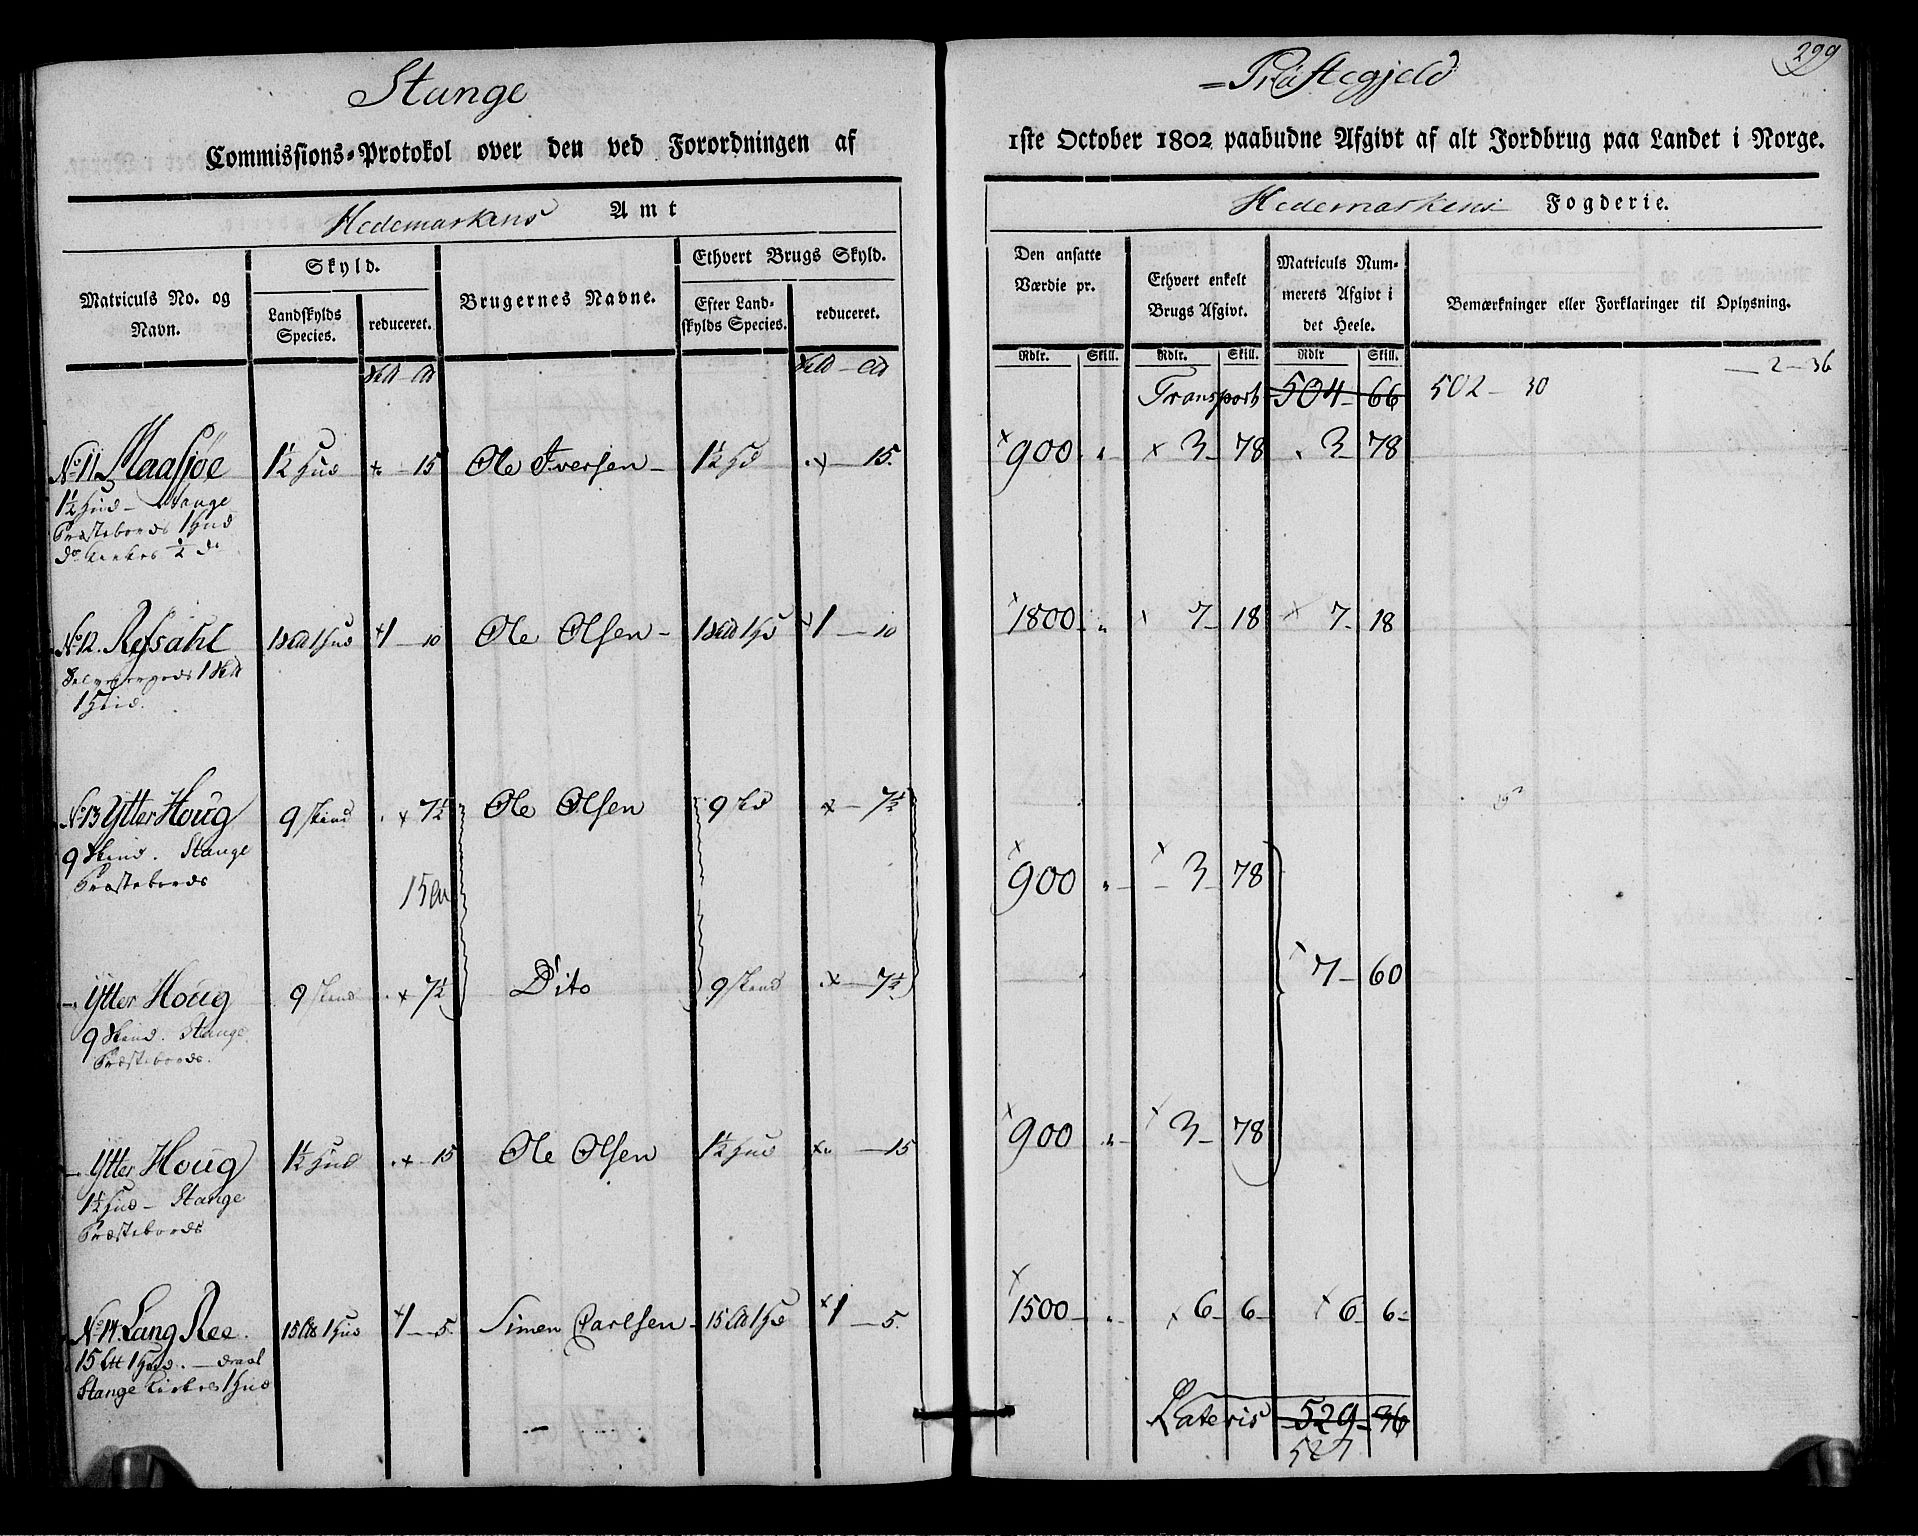 299
Stange
= Præstegjeld
Commissions-Protokol over den ved Forordningen af
1ste October 1802 paabudne Afgivt af alt Jordbrug paa Landet i Norge.
Hedemarkens Amt
Hedemarkens Fogderie.
Matriculs No. og Navn.
Skyld.
Landskylds Species.
reduceret.
Brugernes Navne.
Ethvert Brugs Skyld.
Efter Landskylds Species.
reduceret.
Den ansatte Værdie pr.
Ethvert enkelt Brugs Afgivt.
Matriculs Nummerets Afgivt i det Heele.
Bemærkninger eller Forklaringer til Oplysning.
Rdlr. Skill. Rdlr. Skill. Rdlr Skill.
Transport 504 - 66 502 - 30 — 2 - 36
No 11 Maasjøe 1½ Hud 15 Ole Iversen - 1½ Hd 15. 900 3 - 78 3 - 78
1½ Hud - Stange
Præstebords 1 Hud
do Kirkes ½ do
No 12. Refsahl 1 Hud 1 - 10 Ole Olsen - 1 Hd 1 - 10 1800 7 - 18 7 - 18
1 Hud.
No 13 Ytter Houg 9 Skind 7½ Ole Olsen 9 Skd 7½
9 Skind. Stange
Præstebords
15
900 3 - 78
- Ytter Houg 9 Skind 7½ Dito 9 Skind 7½ 7 - 60
9 Skind. Stange
Præstebords.
- Ytter Houg 1½ Hud 15 Ole Olsen 1½ Hud 15 900 3 - 78
1½ Hud - Stange
Præstebords
No 14. Lang Ree. 15 1 Hud 1 - 5. Simen Carlsen - 15 1 Hd 1 - 5. 1500 6 - 6 6 - 6
15 1 Hud.
Stange Kirkes 1 Hud
Lateris 529 - 36
527